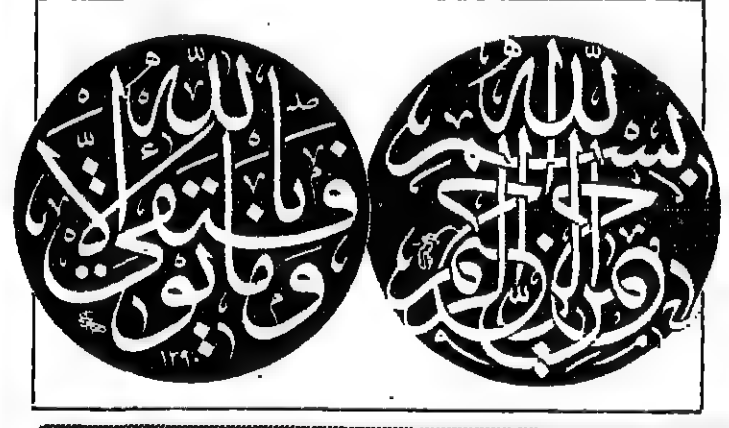 بسم الله الرحمن الرحيم
وما توفيقي إلا بالله
١٣٩٠